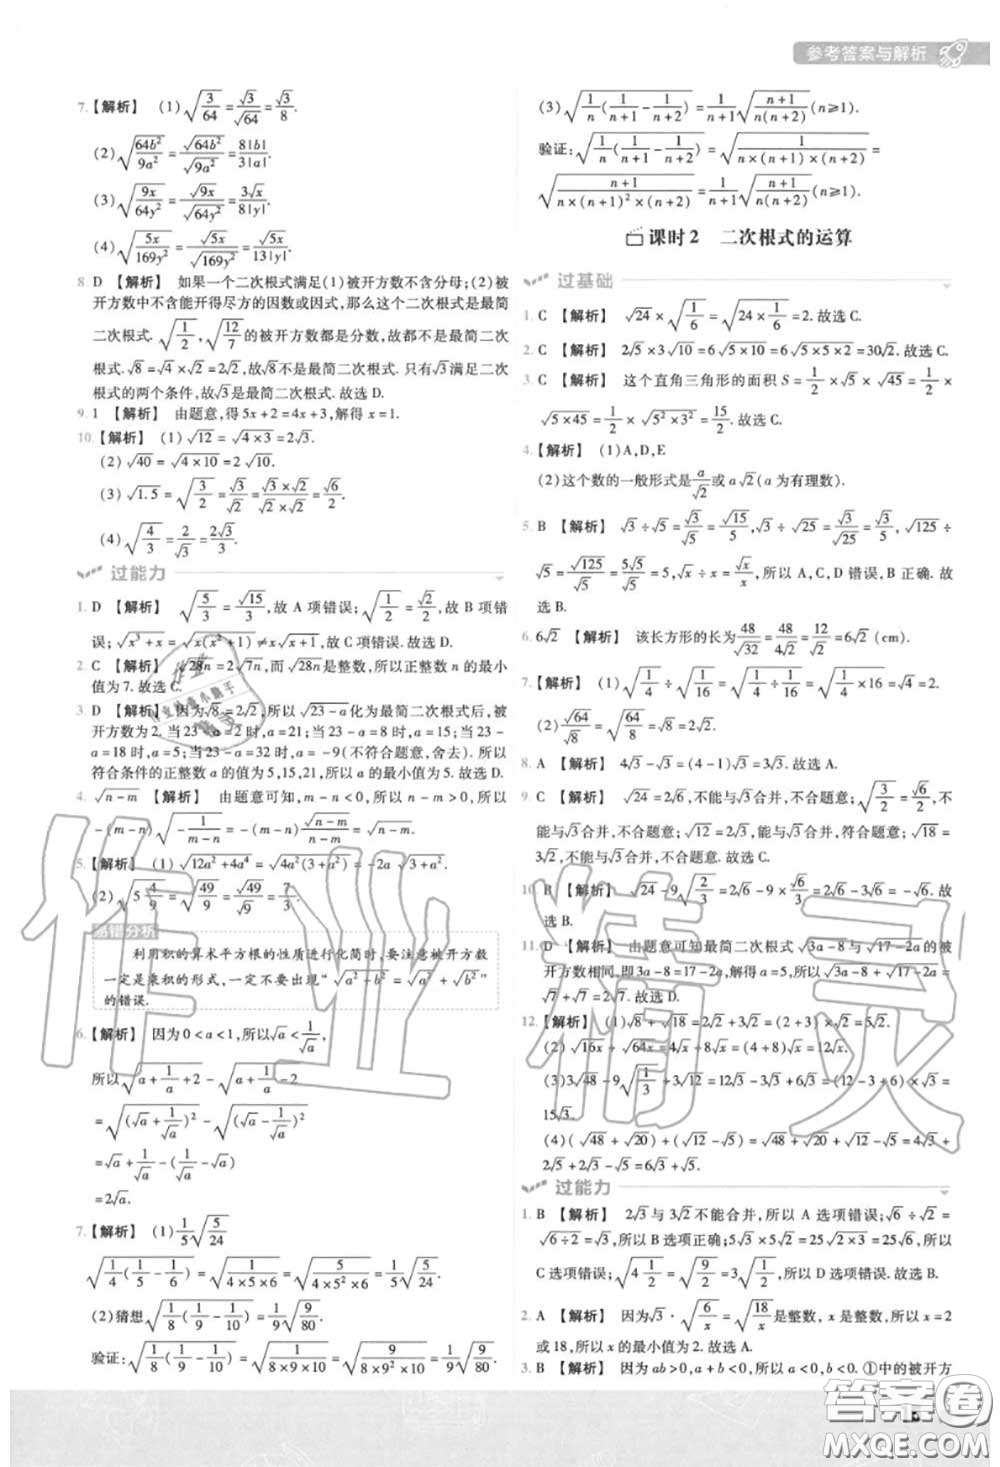 参考答案与解析
7.【解析】 (1)√(3/64)=√3/√64=√3/8.
(2)√(64b²/9a²)=√(64b²)/√(9a²)=8|b|/3|a|.
(3)√(9x/64y²)=√(9x)/√(64y²)=3√x/8|y|.
(4)√(5x/169y²)=√(5x)/√(169y²)=√(5x)/13|y|.
8 D 【解析】 如果一个二次根式满足(1)被开方数不含分母;(2)被
开方数中不含能开得尽方的因数或因式,那么这个二次根式是最简
二次根式.√(1/2),√(12/7)的被开方数都是分数,故都不是最简二次根
式.√8=√4×√2=2√2,故√8不是最简二次根式.只有√3满足最简二次
根式的两个条件,故√3是最简二次根式.故选D.
9. 1 【解析】 由题意,得5x+2=4x+3,解得x=1.
10.【解析】 (1)√12=√(4×3)=2√3.
(2)√40=√(4×10)=2√10.
(3)√1.5=√(3/2)=√3/√2=(√3×√2)/(√2×√2)=√6/2.
(4)√(4/3)=2/√3=2√3/3.
过能力
1. D 【解析】 √(5/3)=√15/3,故A项错误;√(1/2)=√2/2,故B项错
误;√(x³+x)=√(x(x²+1))≠x√(x+1),故C项错误.故选D.
2. C 【解析】 √28n=2√7n,而√28n是整数,所以正整数n的最小
值为7.故选C.
3. D 【解析】 因为√8=2√2,所以√(23-a)化为最简二次根式后,被
开方数为2.当23-a=2时,a=21;当23-a=8时,a=15;当23-a
=18时,a=5;当23-a=32时,a=-9(不符合题意,舍去).所以
符合条件的正整数a的值为5,15,21,所以a的最小值为5.故选D.
4. √(n-m) 【解析】 由题意可知,m-n<0,所以n-m>0,所以
-(m-n)√(-1/(m-n))=-(m-n)√(n-m)/(n-m)=√(n-m).
5.【解析】 (1)√(12a²+4a⁴)=√(4a²(3+a²))=-2a√(3+a²).
(2)√(5 4/9)=√(49/9)=√49/√9=7/3.
易错分析
利用积的算术平方根的性质进行化简时,要注意被开方数
一定是乘积的形式,一定不要出现“√(a²+b²)=√a²+√b²”
的错误.
6.【解析】 因为0<a<1,所以√a<√(1/a),
所以√(a+1/a+2)-√(a+1/a-2)
=√((√a+1/√a)²)-√((√a-1/√a)²)
=√a+1/√a-(1/√a-√a)
=2√a.
7.【解析】 (1)1/5√(5/24)
√(1/4(1/5-1/6))=√(1/(4×5×6))=√(5/(4×5²×6))=1/5√(5/24).
(2)猜想√(1/8(1/9-1/10))=1/9√(9/80)
验证:√(1/8(1/9-1/10))=√(1/(8×9×10))=√(9/(8×9²×10))=1/9√(9/80).
(3)√(1/n(1/(n+1)-1/(n+2)))=1/(n+1)√((n+1)/(n(n+2)))(n≥1).
验证:√(1/n(1/(n+1)-1/(n+2)))=√(1/(n×(n+1)×(n+2)))=
√((n+1)/(n×(n+1)²×(n+2)))=1/(n+1)√((n+1)/(n(n+2)))(n≥1).
课时2 二次根式的运算
过基础
1. C 【解析】 √24×√(1/6)=√(24×1/6)=2.故选C.
2. C 【解析】 2√5×3√10=6√(5×10)=6√(5×5×2)=30√2.故选C.
3. C 【解析】 这个直角三角形的面积S=1/2×√5×√45=1/2×
√(5×45)=1/2×√(5²×3²)=15/2.故选C.
4.【解析】 (1)A,D,E
(2)这个数的一般形式是a/√2或a√2(a为有理数).
5. B 【解析】 √3÷√5=√3/√5=√15/5,√3÷√25=√3/√25=√3/5,√125÷
√5=√125/√5=5√5/√5=5,√x÷x=√x/x.所以A,C,D错误,B正确.故
选B.
6. 6√2 【解析】 该长方形的长为48/√32=48/4√2=12/√2=6√2(cm).
7.【解析】 (1)√(1/4)÷√(1/16)=√(1/4÷1/16)=√(1/4×16)=√4=2.
(2)√64/√8=√(64/8)=√8=2√2.
8. A 【解析】 4√3-√3=(4-1)√3=3√3.故选A.
9. C 【解析】 √24=2√6,不能与√3合并,不合题意;√(3/2)=√6/2,不
能与√3合并,不合题意;√12=2√3,能与√3合并,符合题意;√18=
3√2,不能与√3合并,不合题意.故选C.
10. B 【解析】 √24-9√(2/3)=2√6-9×√6/3=2√6-3√6=-√6.故
选B.
11. D 【解析】 由题意可知最简二次根式√(3a-8)与√(17-2a)的被
开方数相同,即3a-8=17-2a,解得a=5,所以√(3a-8)+√(17-2a)=
√7+√7=2√7.故选D.
12.【解析】 (1)√8+√18=2√2+3√2=(2+3)×√2=5√2.
(2)√16x+√64x=4√x+8√x=(4+8)√x=12√x.
(3)3√48-9√(1/3)+3√12=12√3-3√3+6√3=(12-3+6)×√3=
15√3.
(4)(√48+√20)+(√12-√5)=√48+√20+√12-√5=4√3+
2√5+2√3-√5=6√3+√5.
过能力
1. B 【解析】 2√3与3√2不能合并,所以A选项错误;√6÷√2=
√(6÷2)=√3,所以B选项正确;5√3×5√2=25√(3×2)=25√6,所以
C选项错误;√(4 1/2)=√(9/2)=3√2/2,所以D选项错误.故选B.
2. A 【解析】 因为√3·√(6/x)=√(18/x)是整数,x是整数,所以x=2
或18,所以x的最小值为2.故选A.
3. B 【解析】 因为ab>0,a+b<0,所以a<0,b<0.①中的被开方
作业精灵
答案圈
MXQE.COM